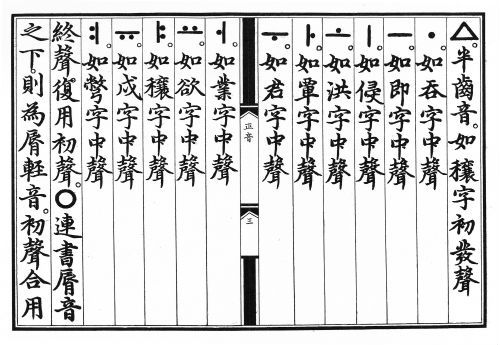 ㅿ。半齒音。如穰字初發聲
ㆍ。如呑字中聲
ㅡ。如即字中聲
ㅣ。如侵字中聲
ㅗ。如洪字中聲
ㅏ。如覃字中聲
ㅜ。如君字中聲
正音
三
ㅓ。如業字中聲
ㅛ。如欲字中聲
ㅑ。如穰字中聲
ㅠ。如戌字中聲
ㅕ。如彆字中聲
終聲。復用初聲。ㅇ連書脣音
之下。則為脣輕音。初聲合用